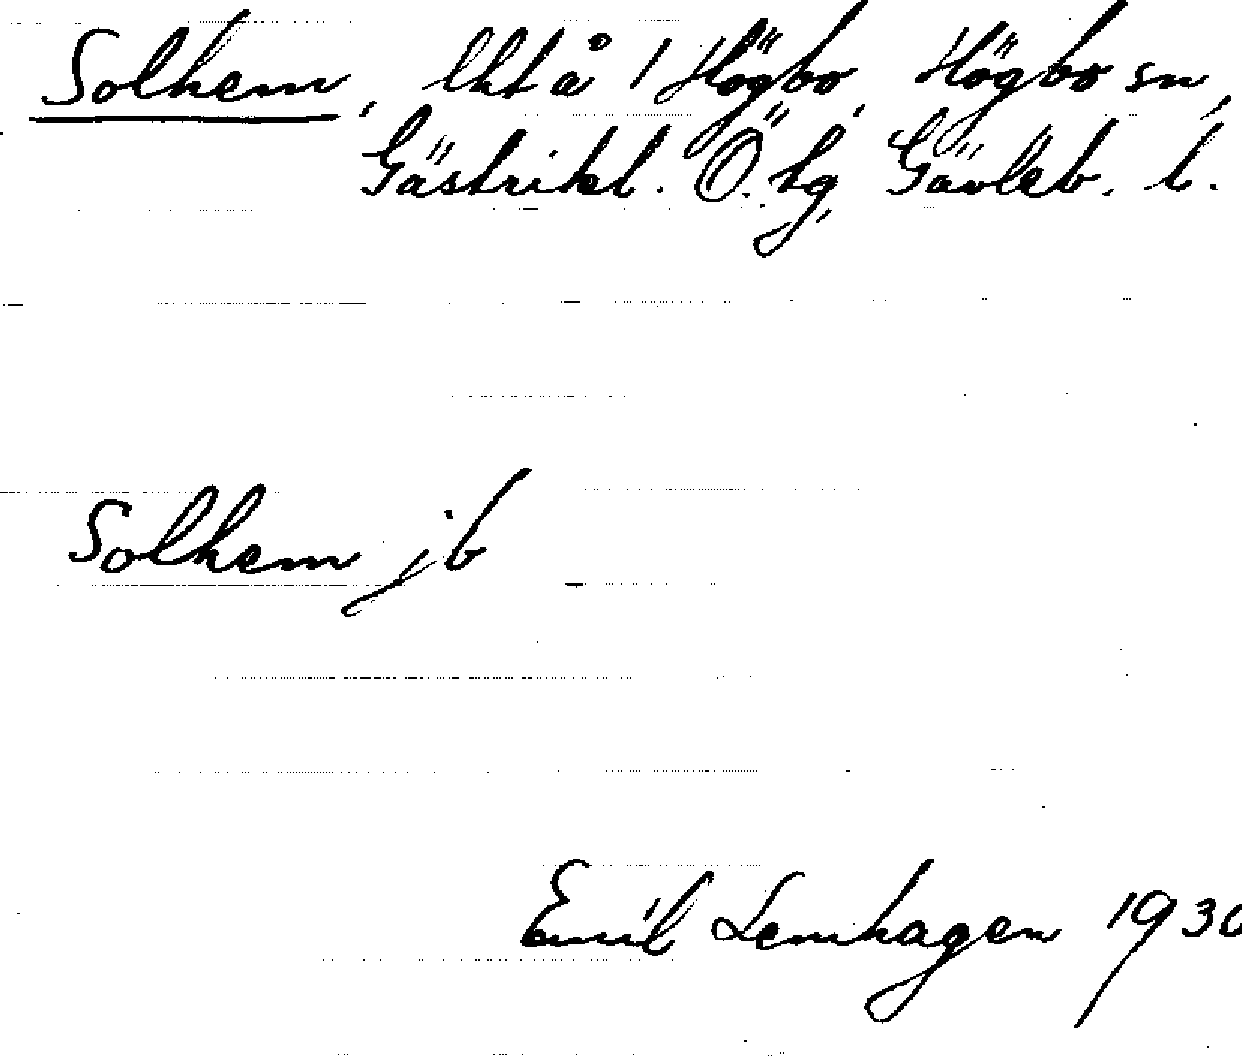 Solhem, lht å 1 Högbo, Högbo sn,
Gästrikl. Ö. tg, Gävleb. l.
Solhem jb
Emil Lenhagen 1930